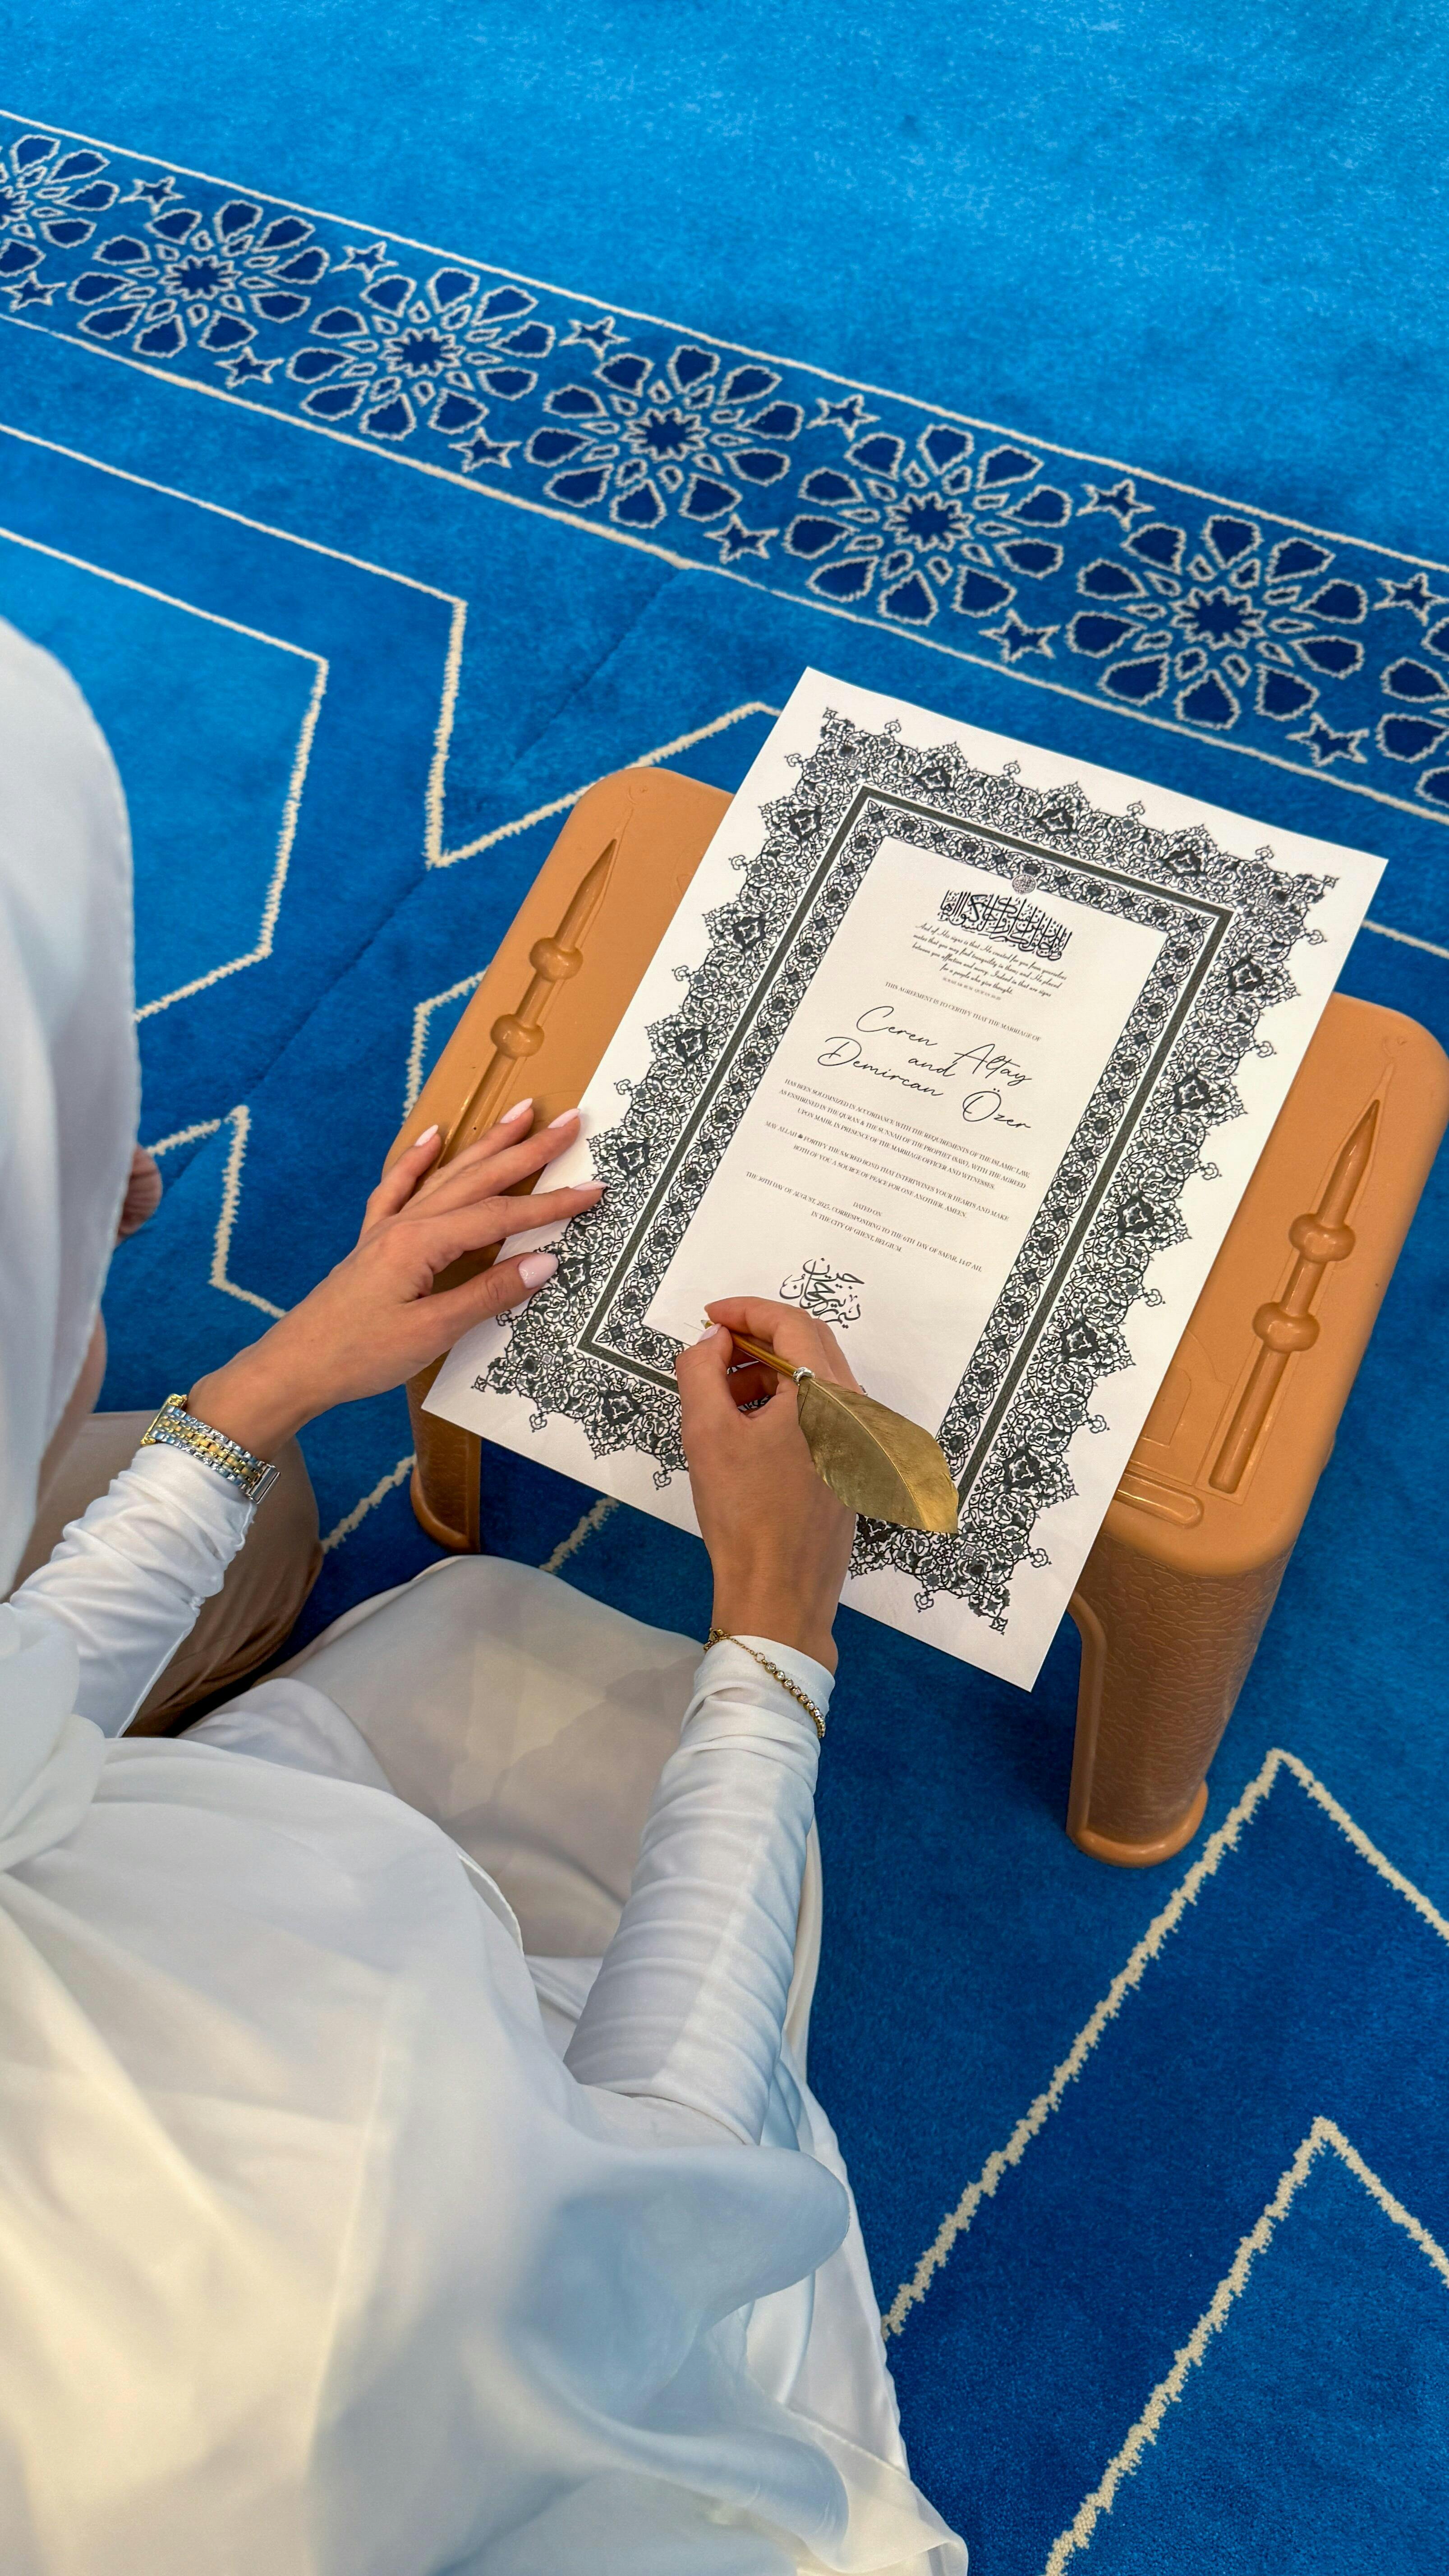 And of His signs is that He created for you from yourselves
mates that you may find tranquility in them; and He placed
between you affection and mercy. Indeed in that are signs
for a people who give thought.
THIS AGREEMENT IS TO CERTIFY THAT THE MARRIAGE OF
Ceren Altay
and
Demircan Özer
HAS BEEN SOLOMNIZED IN ACCORDANCE WITH THE REQUIREMENTS OF THE ISLAMIC LAW,
AS ENSHRINED IN THE QURAN & THE SUNNAH OF THE PROPHET (SAW), WITH THE AGREED
UPON MAHR, IN PRESENCE OF THE MARRIAGE OFFICER AND WITNESSES.
MAY ALLAH ﷻ FORTIFY THE SACRED BOND THAT INTERTWINES YOUR HEARTS AND MAKE
BOTH OF YOU A SOURCE OF PEACE FOR ONE ANOTHER. AMEEN.
DATED ON
THE 30TH DAY OF AUGUST, 2025, CORRESPONDING TO THE 6TH DAY OF SAFAR, 1447 AH,
IN THE CITY OF GHENT, BELGIUM
جيرين
ديميرجان